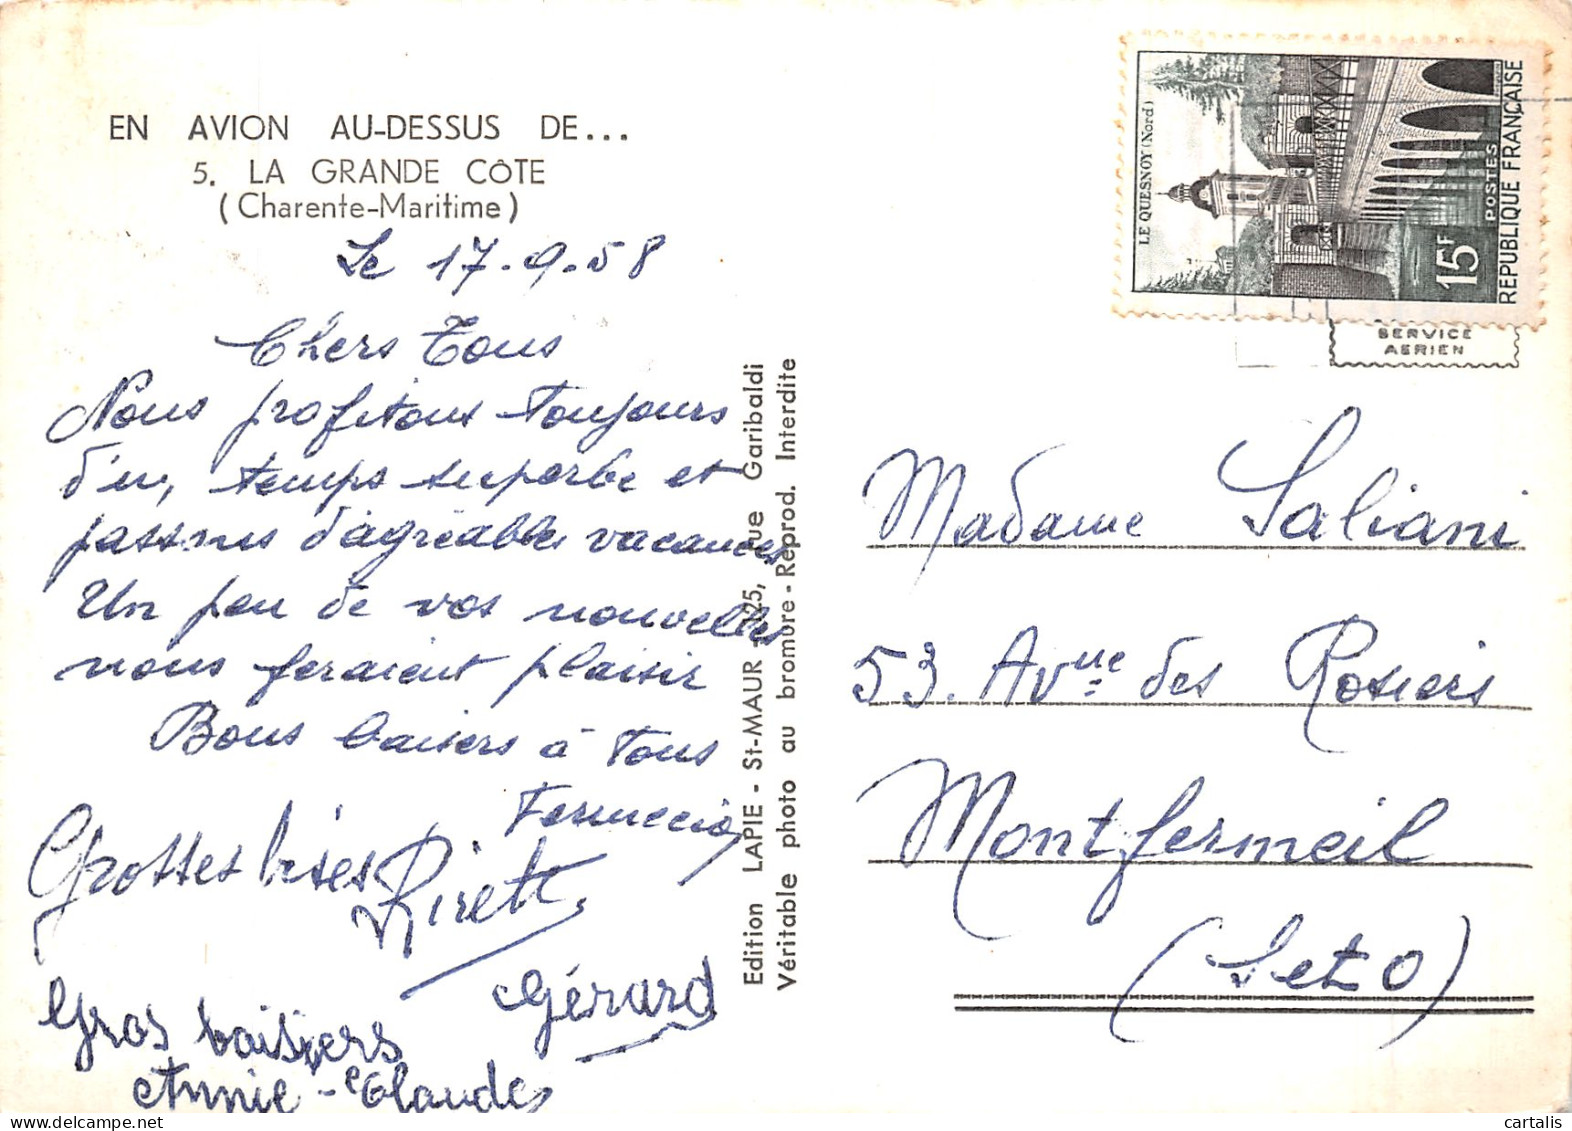 EN AVION AU-DESSUS DE...
5. LA GRANDE CÔTE
(Charente-Maritime)
Le 17.9.58
Chers Tous
Nous profitons toujours
d'un, temps superbe et
passons d'agréables vacances
Un peu de vos nouvelles
nous feraient plaisir
Bons baisers à tous
Ferruccio
Grosses bises
Gérard
Gros baisiers
Annie-Claude
Edition LAPIE - St-MAUR - 125, rue Garibaldi
Véritable photo au bromure - Reprod. Interdite
LE QUESNOY (Nord)
15F
POSTES
REPUBLIQUE FRANÇAISE
SERVICE
AERIEN
Madame Saliani
53. Avnue des Rosiers
Montfermeil
(SetO)
cartalis